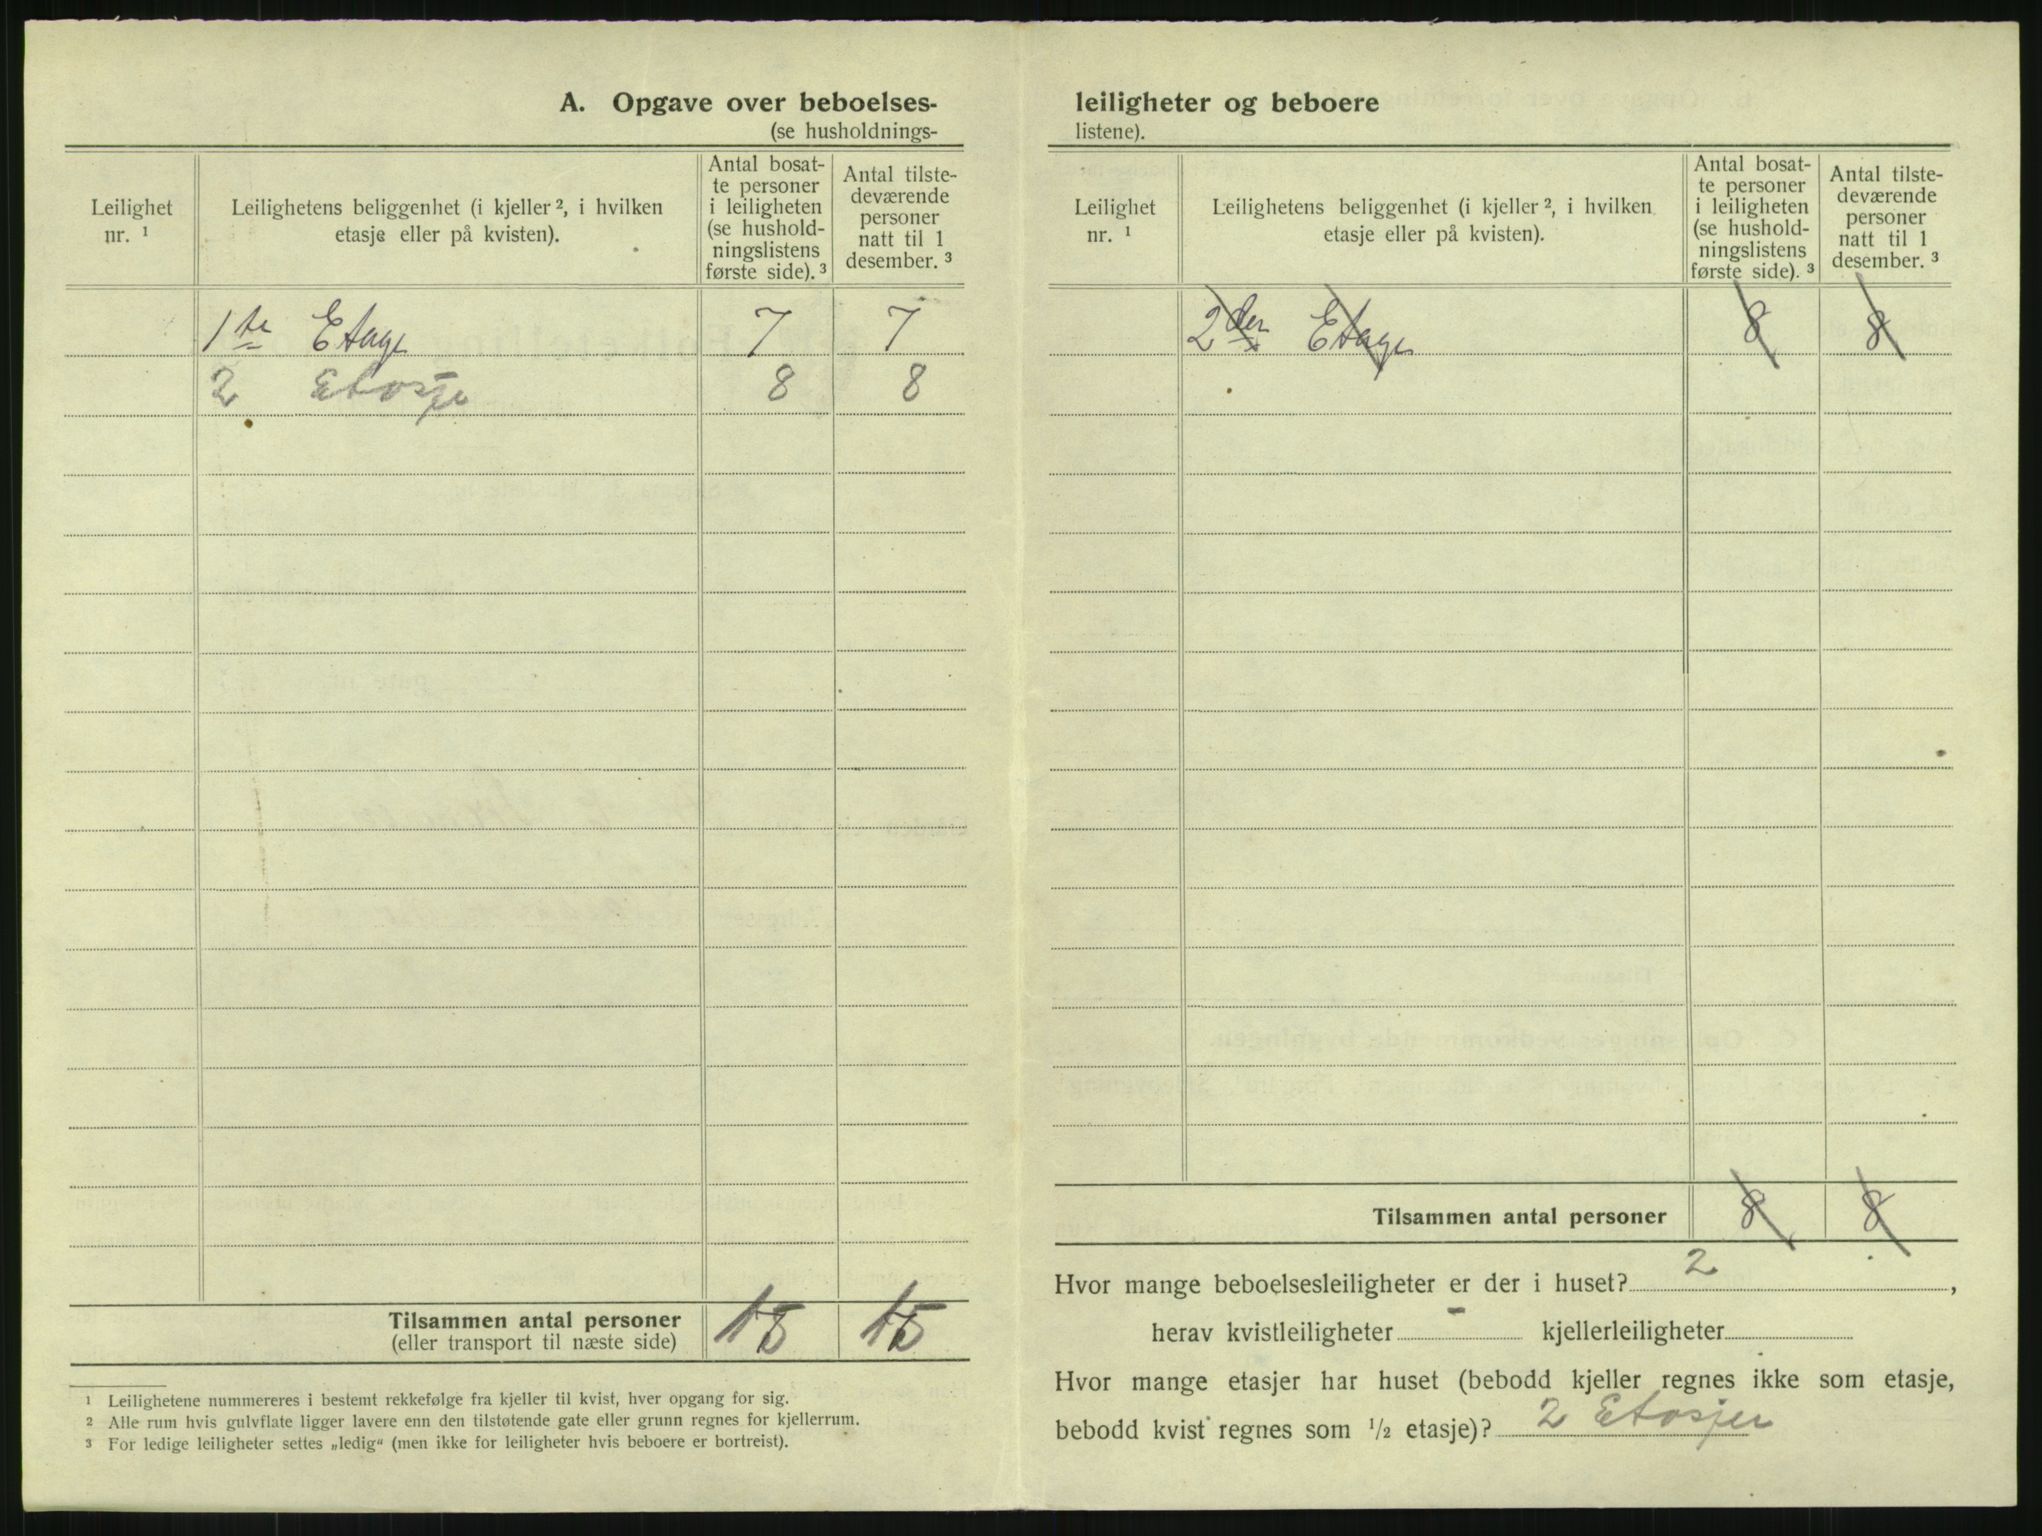 A. Opgave over beboelses-
(se husholdnings-
Leilighet
nr. ¹
Leilighetens beliggenhet (i kjeller ², i hvilken
etasje eller på kvisten).
Antal bosat-
te personer
i leiligheten
(se hushold-
ningslistens
første side). ³
Antal tilste-
deværende
personer
natt til 1
desember. ³
1te Etage 7 7
2 Etasje 8 8
Tilsammen antal personer 15 15
(eller transport til næste side)
¹ Leilighetene nummereres i bestemt rekkefølge fra kjeller til kvist, hver opgang for sig.
² Alle rum hvis gulvflate ligger lavere enn den tilstøtende gate eller grunn regnes for kjellerrum.
³ For ledige leiligheter settes „ledig“ (men ikke for leiligheter hvis beboere er bortreist).
leiligheter og beboere
listene).
Leilighet
nr. ¹
Leilighetens beliggenhet (i kjeller ², i hvilken
etasje eller på kvisten).
Antal bosat-
te personer
i leiligheten
(se hushold-
ningslistens
første side). ³
Antal tilste-
deværende
personer
natt til 1
desember. ³
2den Etage 8 8
Tilsammen antal personer 8 8
Hvor mange beboelsesleiligheter er der i huset? 2 ,
herav kvistleiligheter - kjellerleiligheter
Hvor mange etasjer har huset (bebodd kjeller regnes ikke som etasje,
bebodd kvist regnes som ¹/₂ etasje)? 2 Etasjer